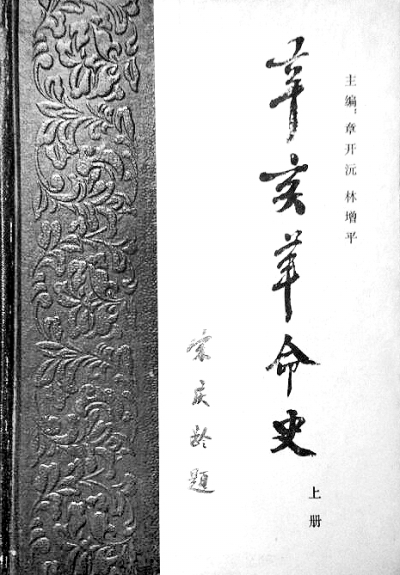 主编：章开沅 林增平
辛亥革命史
上册
宋庆龄题